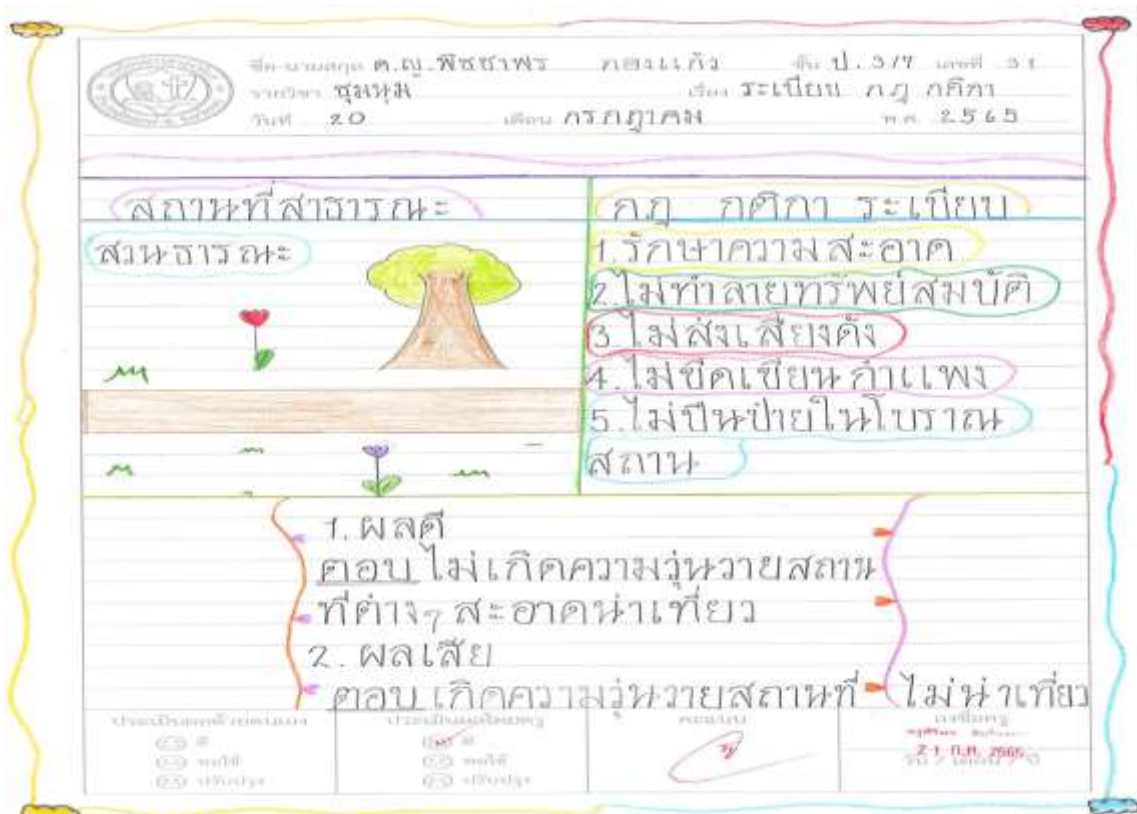 ชื่อ-นามสกุล ด.ญ.พิชชาพร กองแก้ว ชั้น ป.3/7 เลขที่ 31
รายวิชา ชุมนุม เรื่อง ระเบียบ กฎ กติกา
วันที่ 20 เดือน กรกฎาคม พ.ศ. 2565
สถานที่สาธารณะ
สวนธารณะ
กฎ กติกา ระเบียบ
1.รักษาความสะอาด
2.ไม่ทำลายทรัพย์สมบัติ
3.ไม่ส่งเสียงดัง
4.ไม่ขีดเขียนกำแพง
5.ไม่ปีนป่ายในโบราณ
สถาน
1.ผลดี
ตอบ ไม่เกิดความวุ่นวายสถาน
ที่ต่างๆ สะอาดน่าเที่ยว
2.ผลเสีย
ตอบ เกิดความวุ่นวายสถานที่ ไม่น่าเที่ยว
ประเมินผลด้วยตนเอง
ดี
พอใช้
ปรับปรุง
ประเมินผลโดยครู
ดี
พอใช้
ปรับปรุง
คะแนน
ลงชื่อครู
21 ก.ค. 2565
วัน / เดือน / ปี